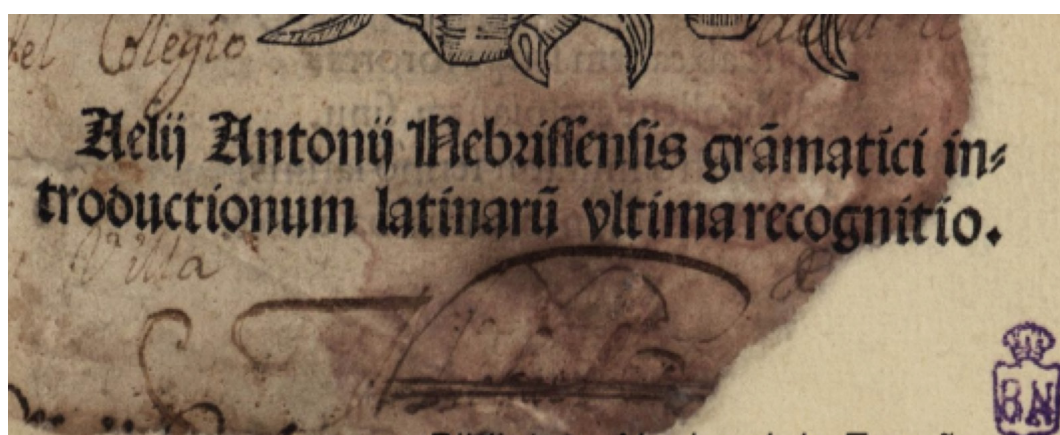 del Colegio
Aelij Antonij Nebrissensis grãmatici in⸗
troductionum latinarũ vltima recognitio.
Villa
BN